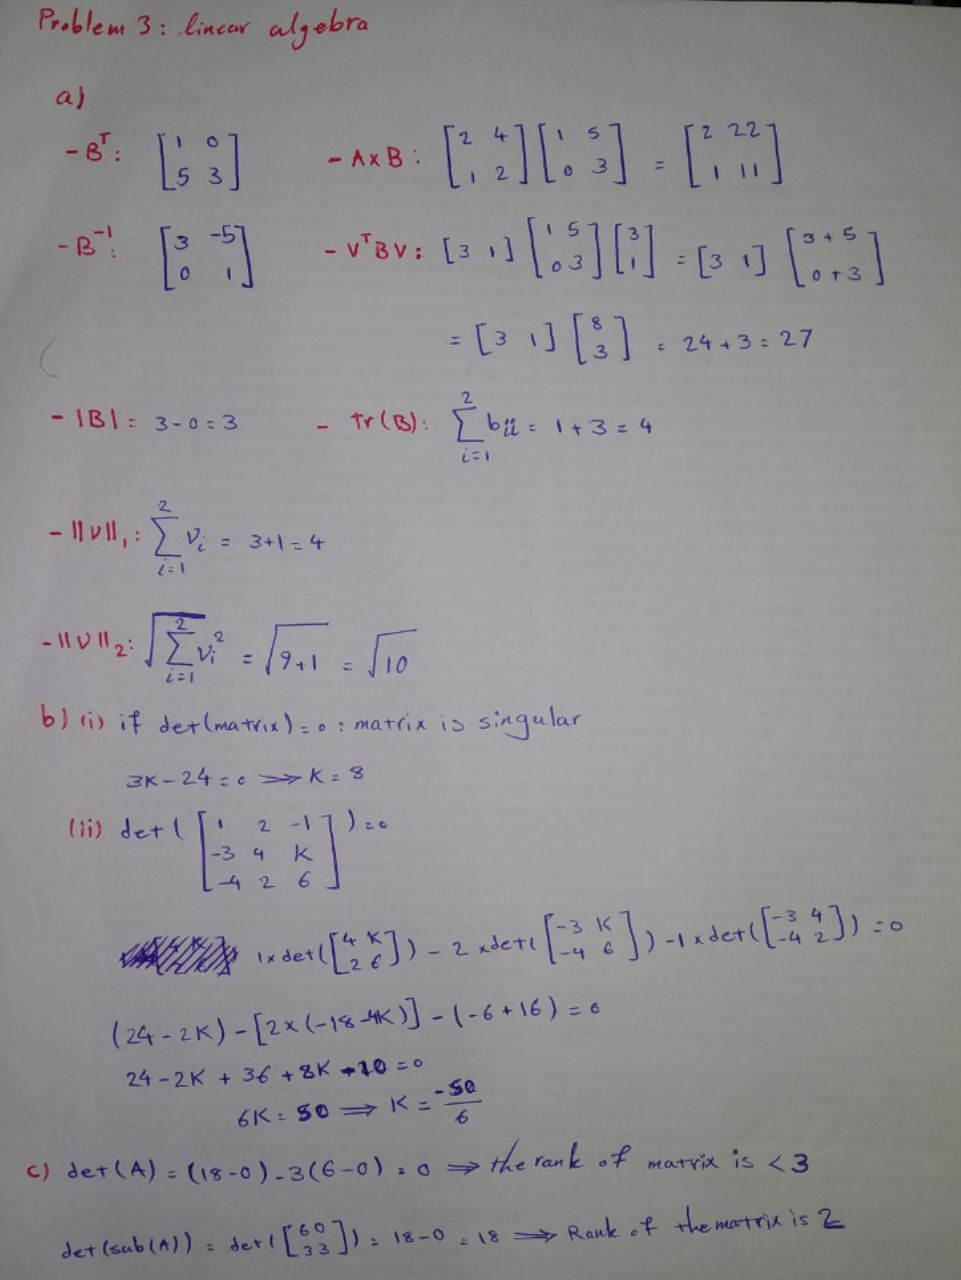 Problem 3: linear algebra
a)
- B^T: [1 0; 5 3]   - A×B: [2 4; 1 2] [1 5; 0 3] = [2 22; 1 11]
- B^-1: [3 -5; 0 1]   - V^T B V: [3 1] [1 5; 0 3] [3; 1] = [3 1] [3+5; 0+3]
= [3 1] [8; 3] = 24+3 = 27
- |B| = 3-0 = 3   - tr(B): ∑_{i=1}^{2} b_ii = 1+3 = 4
- ||V||_1: ∑_{i=1}^{2} V_i = 3+1 = 4
- ||V||_2: √(∑_{i=1}^{2} V_i^2) = √(9+1) = √10
b) (i) if det(matrix)=0: matrix is singular
3K-24=0 ⟹ K=8
(ii) det([1 2 -1; -3 4 K; -4 2 6])=0
1×det([4 K; 2 6]) - 2×det([-3 K; -4 6]) - 1×det([-3 4; -4 2]) = 0
(24-2K) - [2×(-18+4K)] - (-6+16) = 0
24-2K + 36 + 8K -10 = 0
6K = 50 ⟹ K = -50/6
c) det(A) = (18-0) - 3(6-0) = 0 ⟹ the rank of matrix is <3
det(sub(A)) = det([6 0; 3 3]) = 18-0 = 18 ⟹ Rank of the matrix is 2